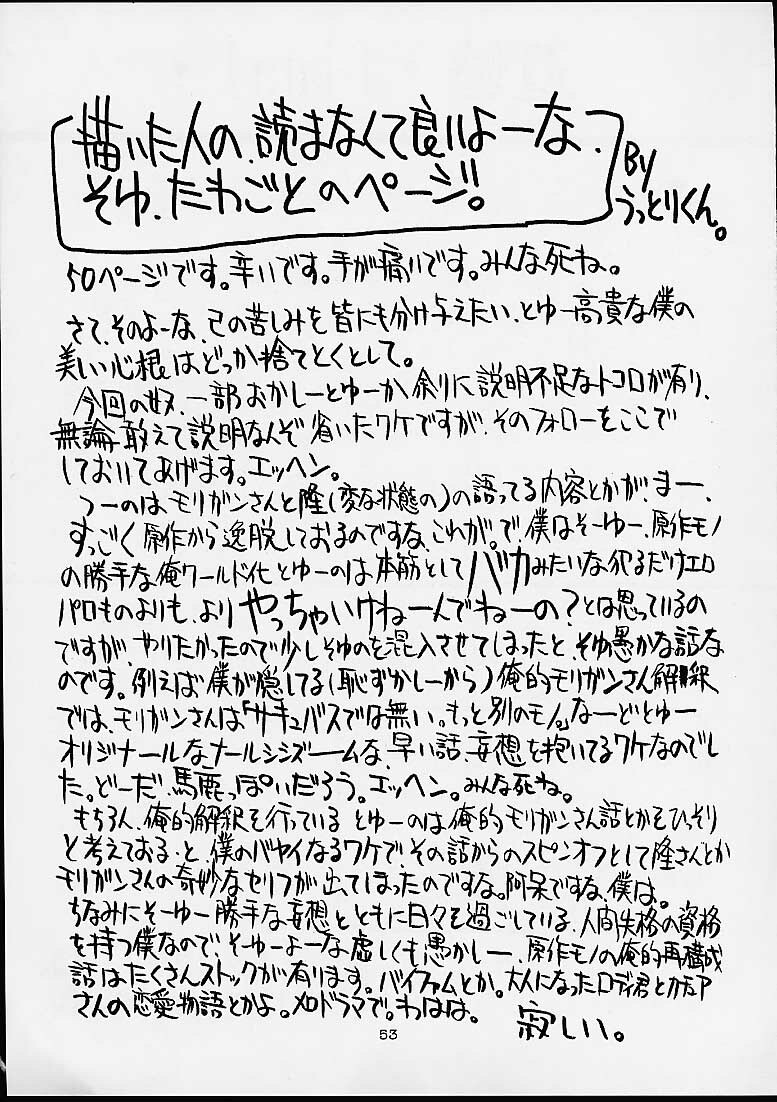 描いた人の、読まなくて良いよーな、
そゆ、たわごとのページ!。
By
うっとりくん。
50ページです。辛いです。手が痛いです。みんな死ね。
さて、そのよーな、己の苦しみを皆にも分け与えたい、とゆー高貴な僕の
美しい心根はどっか捨てとくとして。
今回の奴、一部おかしーとゆーか、余りに説明不足なトコロが有り、
無論敢えて説明なんぞ省いたワケですが、そのフォローをここで
しておいてあげます。エッヘン。
つーのは、モリガンさんと隆(変な状態の)の語ってる内容とかが、まー、
すっごく原作から逸脱しておるのですな、これが。で、僕はそーゆー、原作モノ
の勝手な俺ワールド化とゆーのは本筋としてバカみたいな犯るだけエロ
パロものよりも、よりやっちゃいけねーんでねーの?とは思っているの
ですが、やりたかったので少しそゆのを混入させてしまったと、そゆ愚かな話な
のです。例えば僕が隠してる(恥ずかしーから)俺的モリガンさん解釈
では、モリガンさんは「サキュバスでは無い。もっと別のモノ。」なーどとゆー
オリジナールなナールシシズームな、早い話、妄想を抱いてるワケなのでし
た。どーだ、馬鹿っぽいだろう。エッヘン。みんな死ね。
もちろん、俺的解釈を行っているとゆーのは、俺的モリガンさん話とかをひっそり
と考えておる、と、僕のバヤイなるワケで、その話からのスピンオフとして隆さんとか
モリガンさんの奇妙なセリフが出てしまったのですな。阿呆ですな、僕は。
ちなみにそーゆー勝手な妄想とともに日々を過ごしている、人間失格の資格
を持つ僕なので、そーゆーよーな虚しくも愚かしー、原作モノの俺的再構成
話はたくさんストックが有ります。バイファムとか。大人になったロディ君とカチュア
さんの恋愛物語とかよ。メロドラマで。わはは。
寂しい。
53